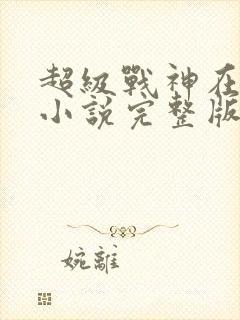 超級戰神在
小說完整版
婉離